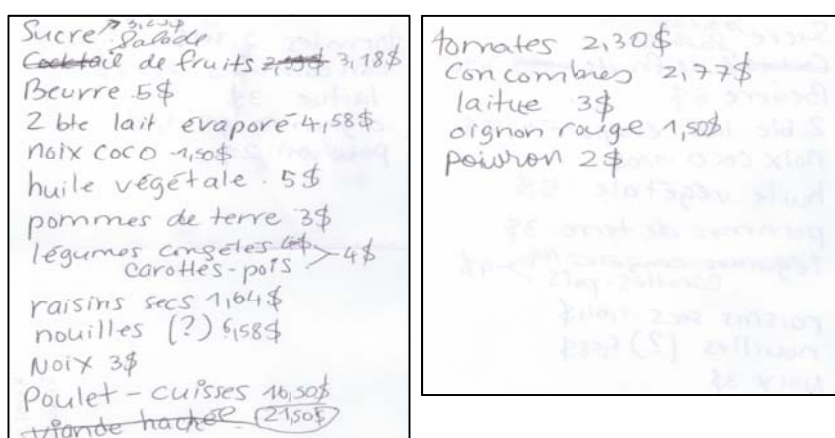 Sucre
Salade
Cocktail de fruits 3,18$
Beurre 5$
2 bte lait évaporé 4,58$
noix coco 1,50$
huile végétale 5$
pommes de terre 3$
légumes congelés 4$
carottes-pois
raisins secs 1,64$
nouilles (?) 5,58$
Noix 3$
Poulet - cuisses 16,50$
viande hachée 21,50$
tomates 2,30$
Concombres 2,77$
laitue 3$
oignon rouge 1,50$
poivron 2$